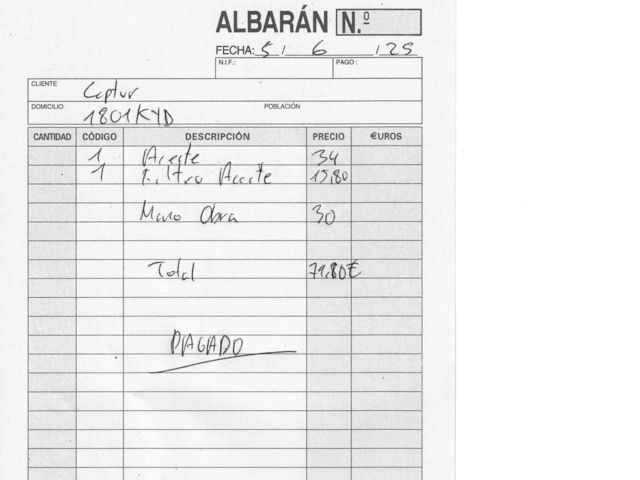 ALBARÁN N.º
FECHA: 5 / 6 / 25
N.I.F.: PAGO:
CLIENTE Captur
DOMICILIO 1801KYD POBLACIÓN
CANTIDAD CÓDIGO DESCRIPCIÓN PRECIO €UROS
1 Aceite 34
1 Filtro Aceite 15,80
Mano Obra 30
Total 79,80€
PAGADO